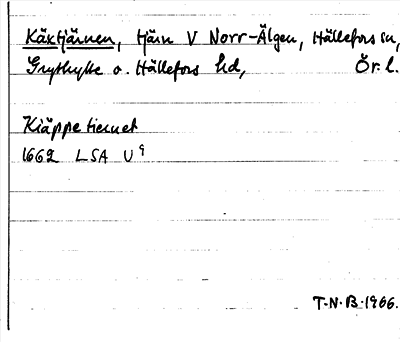 Käxtjärnen, tjärn V Norr-Älgen, Hällefors sn,
Grythytte o. Hällefors hd, Ör. l.
Kiäppe tiernet
1662 LSA U 9
T.N.B. 1966.